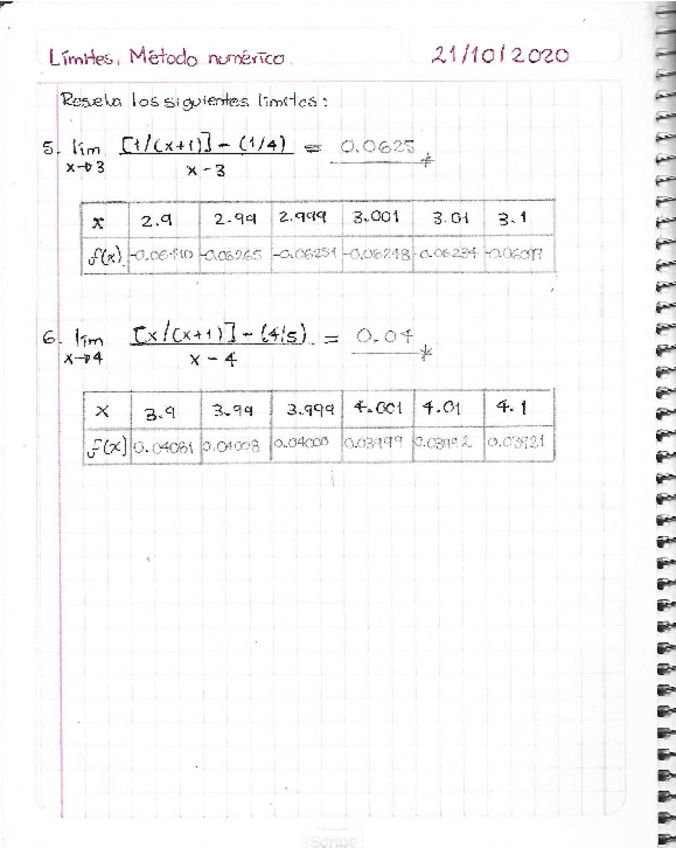 Límites, Método numérico. 21/10/2020
Resuelva los siguientes límites:
5. lim x→3 [1/(x+1)] - (1/4) / x - 3 = 0.0625
x 2.9 2.99 2.999 3.001 3.01 3.1
f(x) -0.06410 -0.06265 -0.06251 -0.06248 -0.06234 -0.06097
6. lim x→4 [x/(x+1)] - (4/5) / x - 4 = 0.04
x 3.9 3.99 3.999 4.001 4.01 4.1
f(x) 0.04081 0.04008 0.04000 0.03999 0.03992 0.03921
Scribe